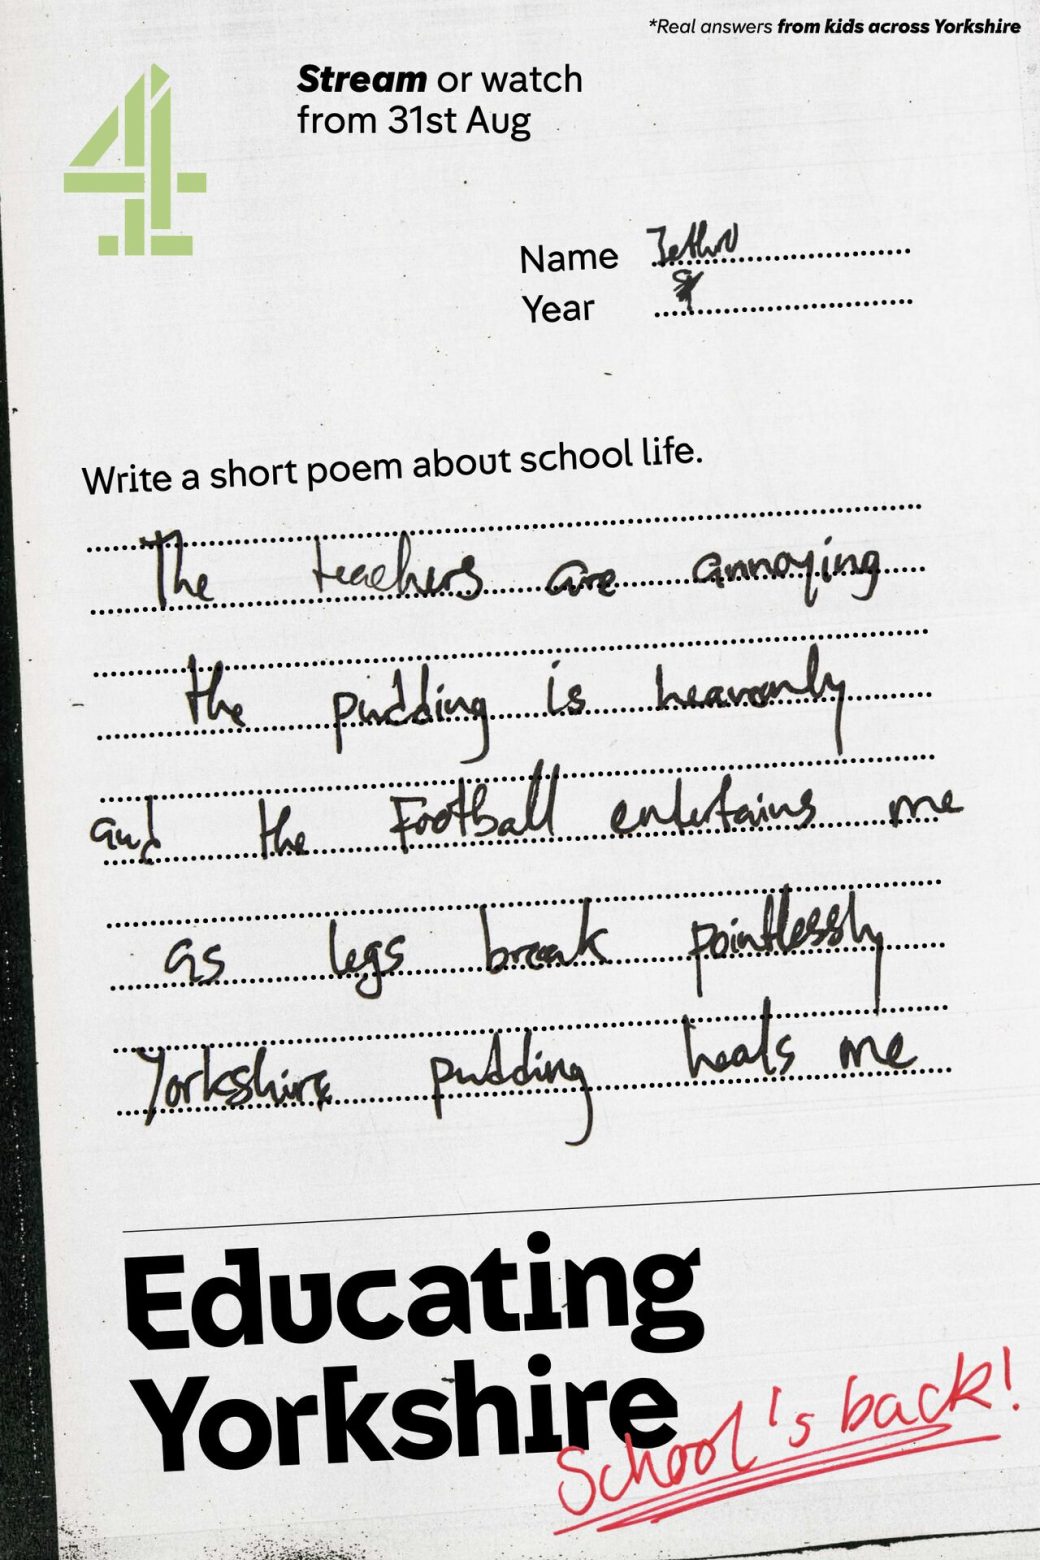 *Real answers from kids across Yorkshire
4
Stream or watch
from 31st Aug
Name Jethro
Year
Write a short poem about school life.
The teachers are annoying
the pudding is heavenly
and the Football entertains me
as legs break pointlessly
Yorkshire pudding heals me
Educating
Yorkshire
School's back!